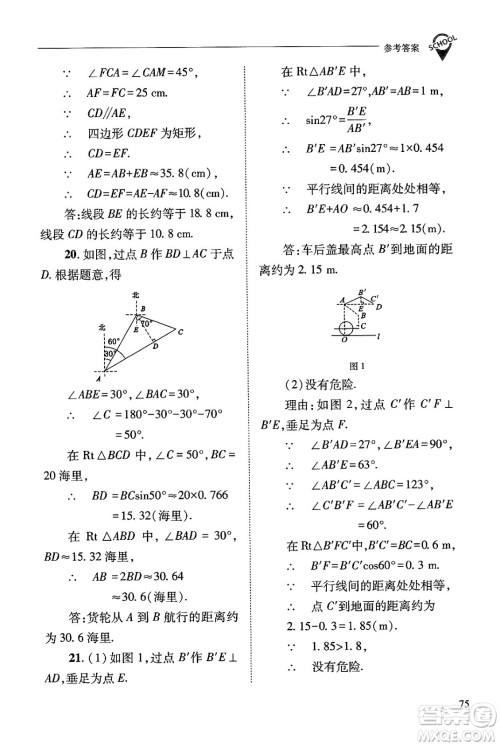 参考答案
SCHOOL
∵　∠FCA=∠CAM=45°,
∴　AF=FC=25 cm.
∵　CD//AE,
∴　四边形 CDEF 为矩形,
∴　CD=EF.
∵　AE=AB+EB≈35.8(cm),
∴　CD=EF=AE-AF≈10.8(cm)
答:线段 BE 的长约等于 18.8 cm,
线段 CD 的长约等于 10.8 cm.
20. 如图,过点 B 作 BD⊥AC 于点
D.根据题意,得
北
北
B
70°
E
C
60°
D
30°
A
∠ABE=30°,∠BAC=30°,
∴　∠C=180°-30°-30°-70°
=50°.
在 Rt△BCD 中,∠C=50°,BC=
20 海里,
∴　BD=BCsin50°≈20×0.766
=15.32(海里).
在 Rt△ABD 中,∠BAD=30°,
BD≈15.32 海里,
∴　AB=2BD≈30.64
≈30.6(海里).
答:货轮从 A 到 B 航行的距离约
为 30.6 海里.
21. (1)如图 1,过点 B′作 B′E⊥
AD,垂足为点 E.
在 Rt△AB′E 中,
∵　∠B′AD=27°,AB′=AB=1 m,
∴　sin27°=B′E/AB′,
∴　B′E=AB′sin27°≈1×0.454
=0.454(m).
∵　平行线间的距离处处相等,
∴　B′E+AO≈0.454+1.7
=2.154≈2.15(m).
答:车后盖最高点 B′到地面的距
离约为 2.15 m.
B′
A
E
O
l
图 1
(2)没有危险.
理由:如图 2,过点 C′作 C′F⊥
B′E,垂足为点 F.
∵　∠B′AD=27°,∠B′EA=90°,
∴　∠AB′E=63°.
∵　∠AB′C′=∠ABC=123°,
∴　∠C′B′F=∠AB′C′-∠AB′E
=60°.
在 Rt△B′FC′中,B′C′=BC=0.6 m,
∴　B′F=B′C′cos60°=0.3 m.
∵　平行线间的距离处处相等,
∴　点 C′到地面的距离约为
2.15-0.3=1.85(m).
∵　1.85>1.8,
∴　没有危险.
75